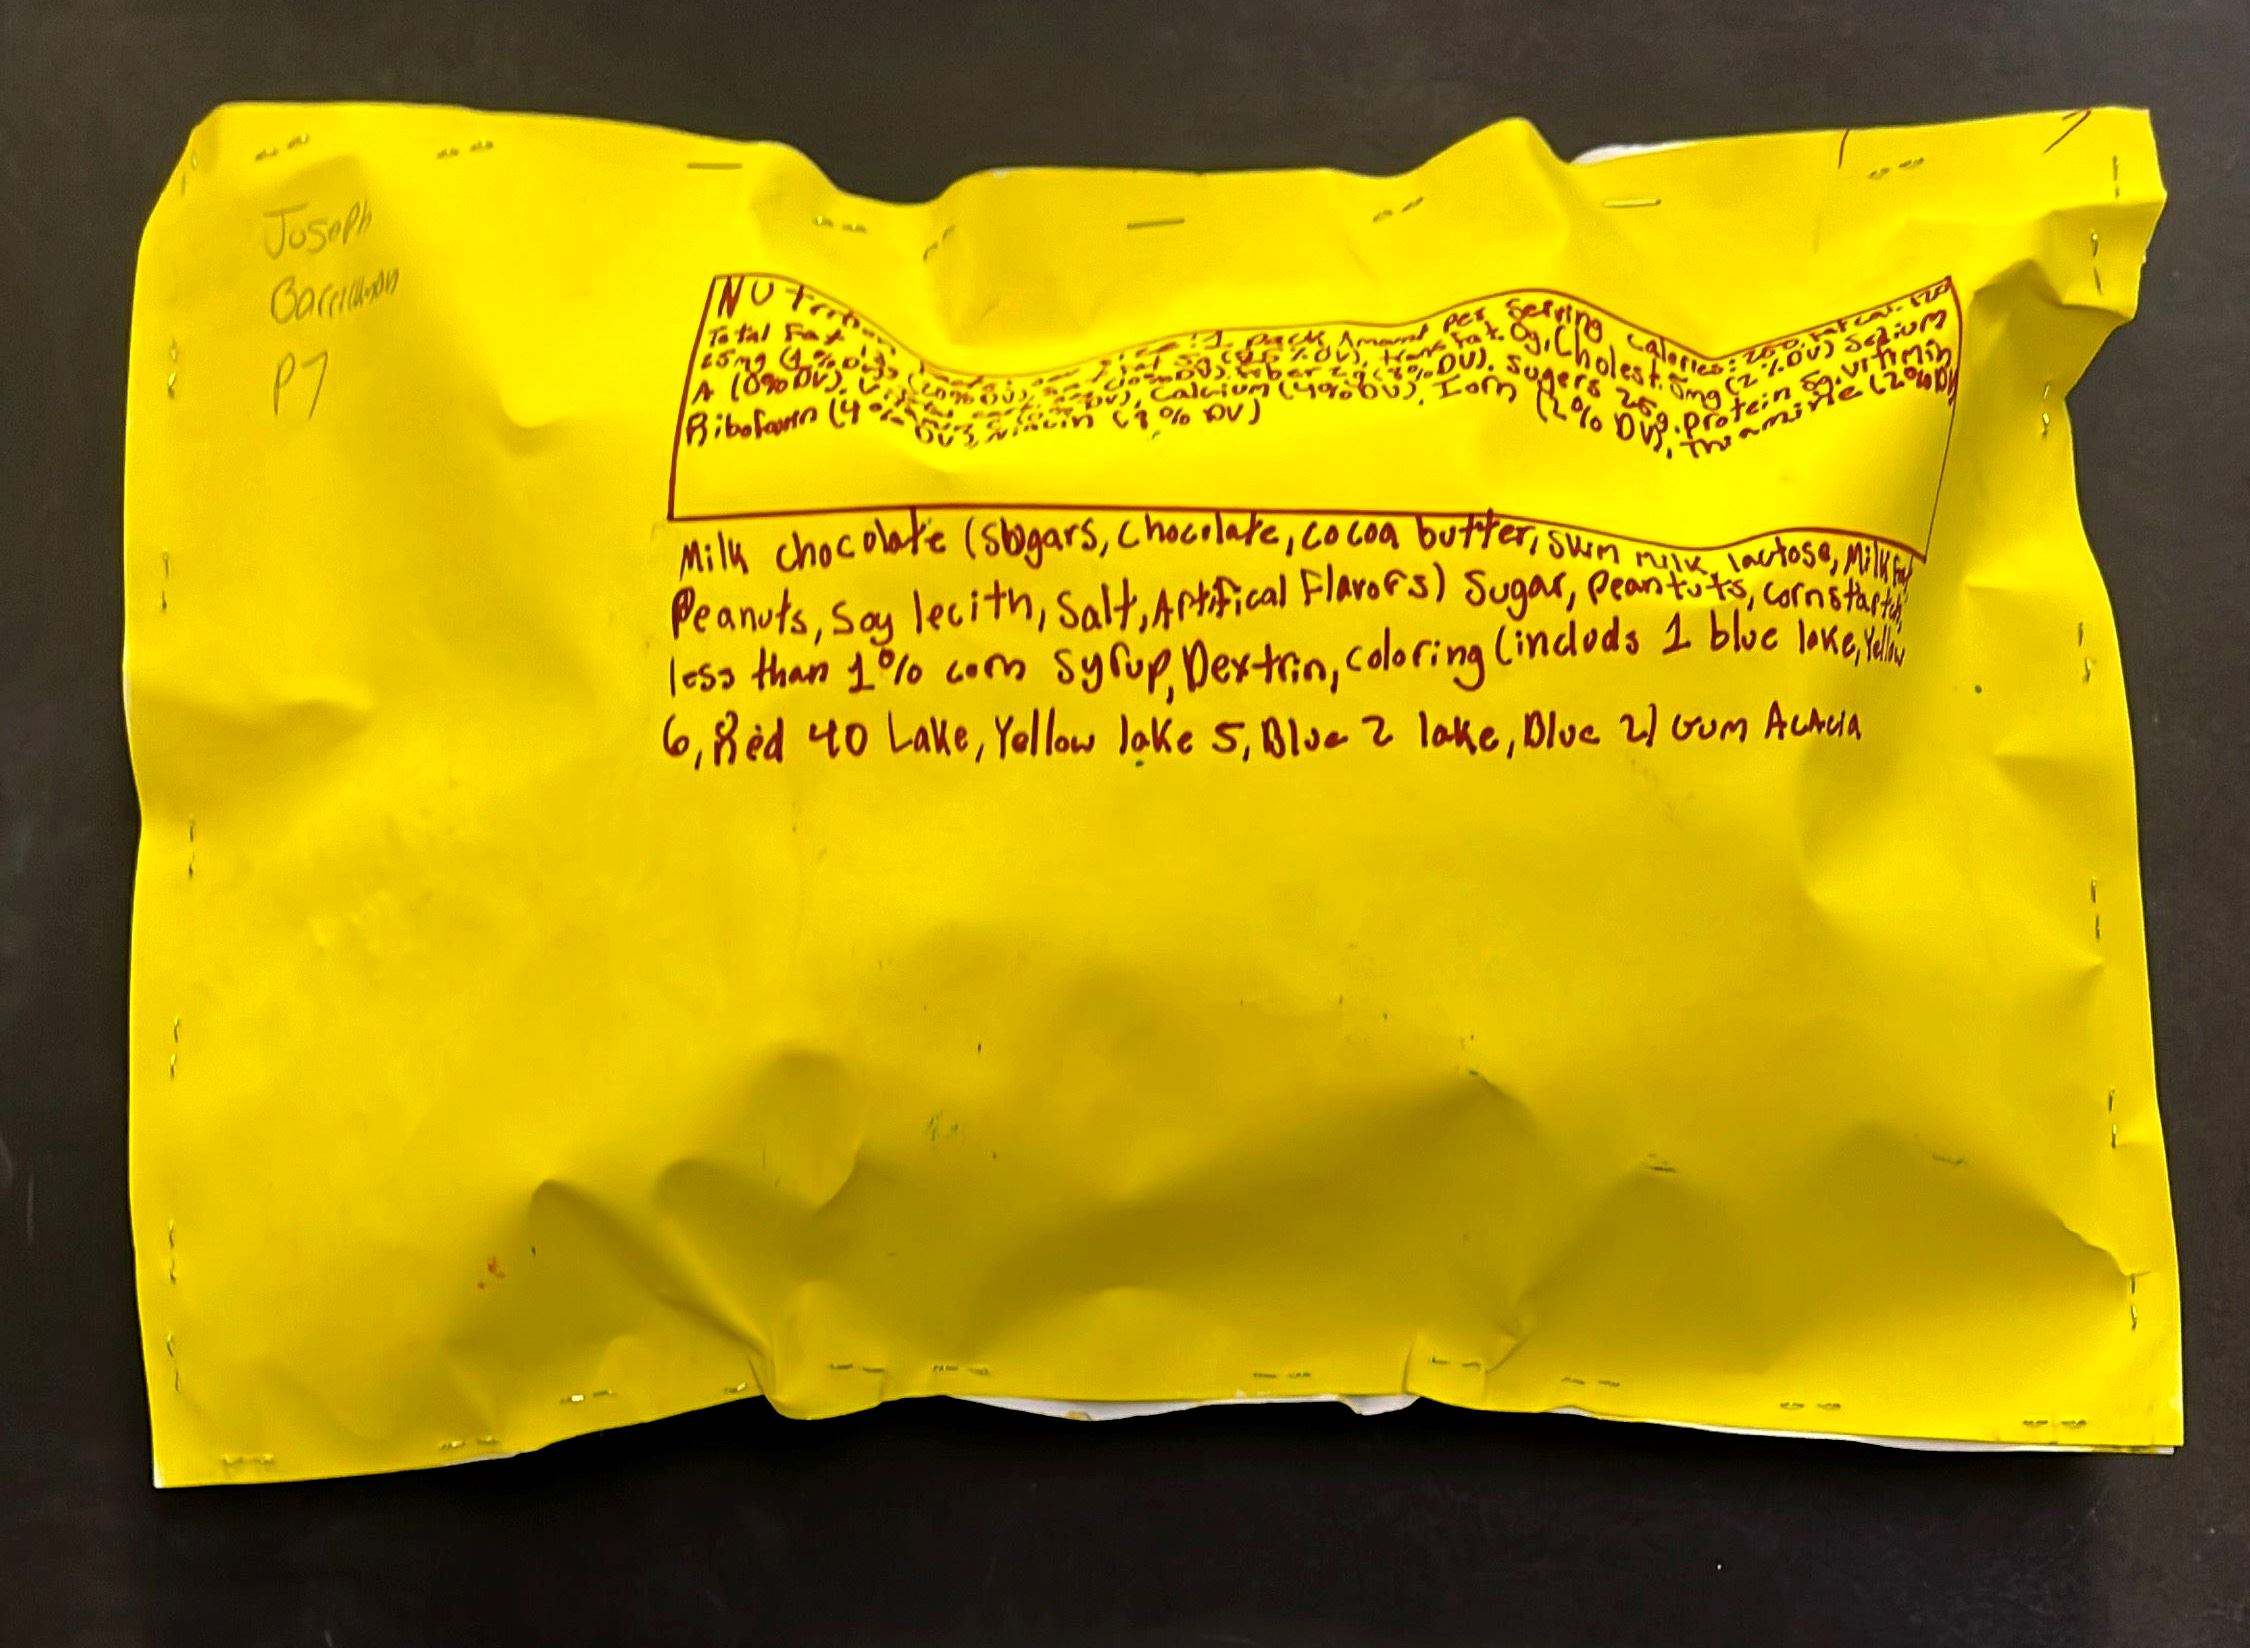 Joseph
P7
Nutrition 1 pack, Amount per serving calories: 250, Fat cal. 120
Total Fat trans fat. 0g, Cholest. 5mg (2% DV) Sodium
25mg (1% DV), Fiber 2g (8% DV). Sugers 25g. Protein 5g. Vitimin
A (0% DV), Calcium (4% DV), Iorn (2% DV), Thiamine (2% DV)
(4% DV), Niacin DV)
Milk chocolate (sugars, chocolate, cocoa butter, skim milk, lactose, Milk fat
Peanuts, Soy lecith, Salt, Artifical Flavors) Sugar, Peantuts, cornstartch,
less than 1% corn syrup, Dextrin, coloring (includs 1 blue lake, Yellow
6, Red 40 Lake, Yellow lake 5, Blue 2 lake, Blue 2) Gum Acacia